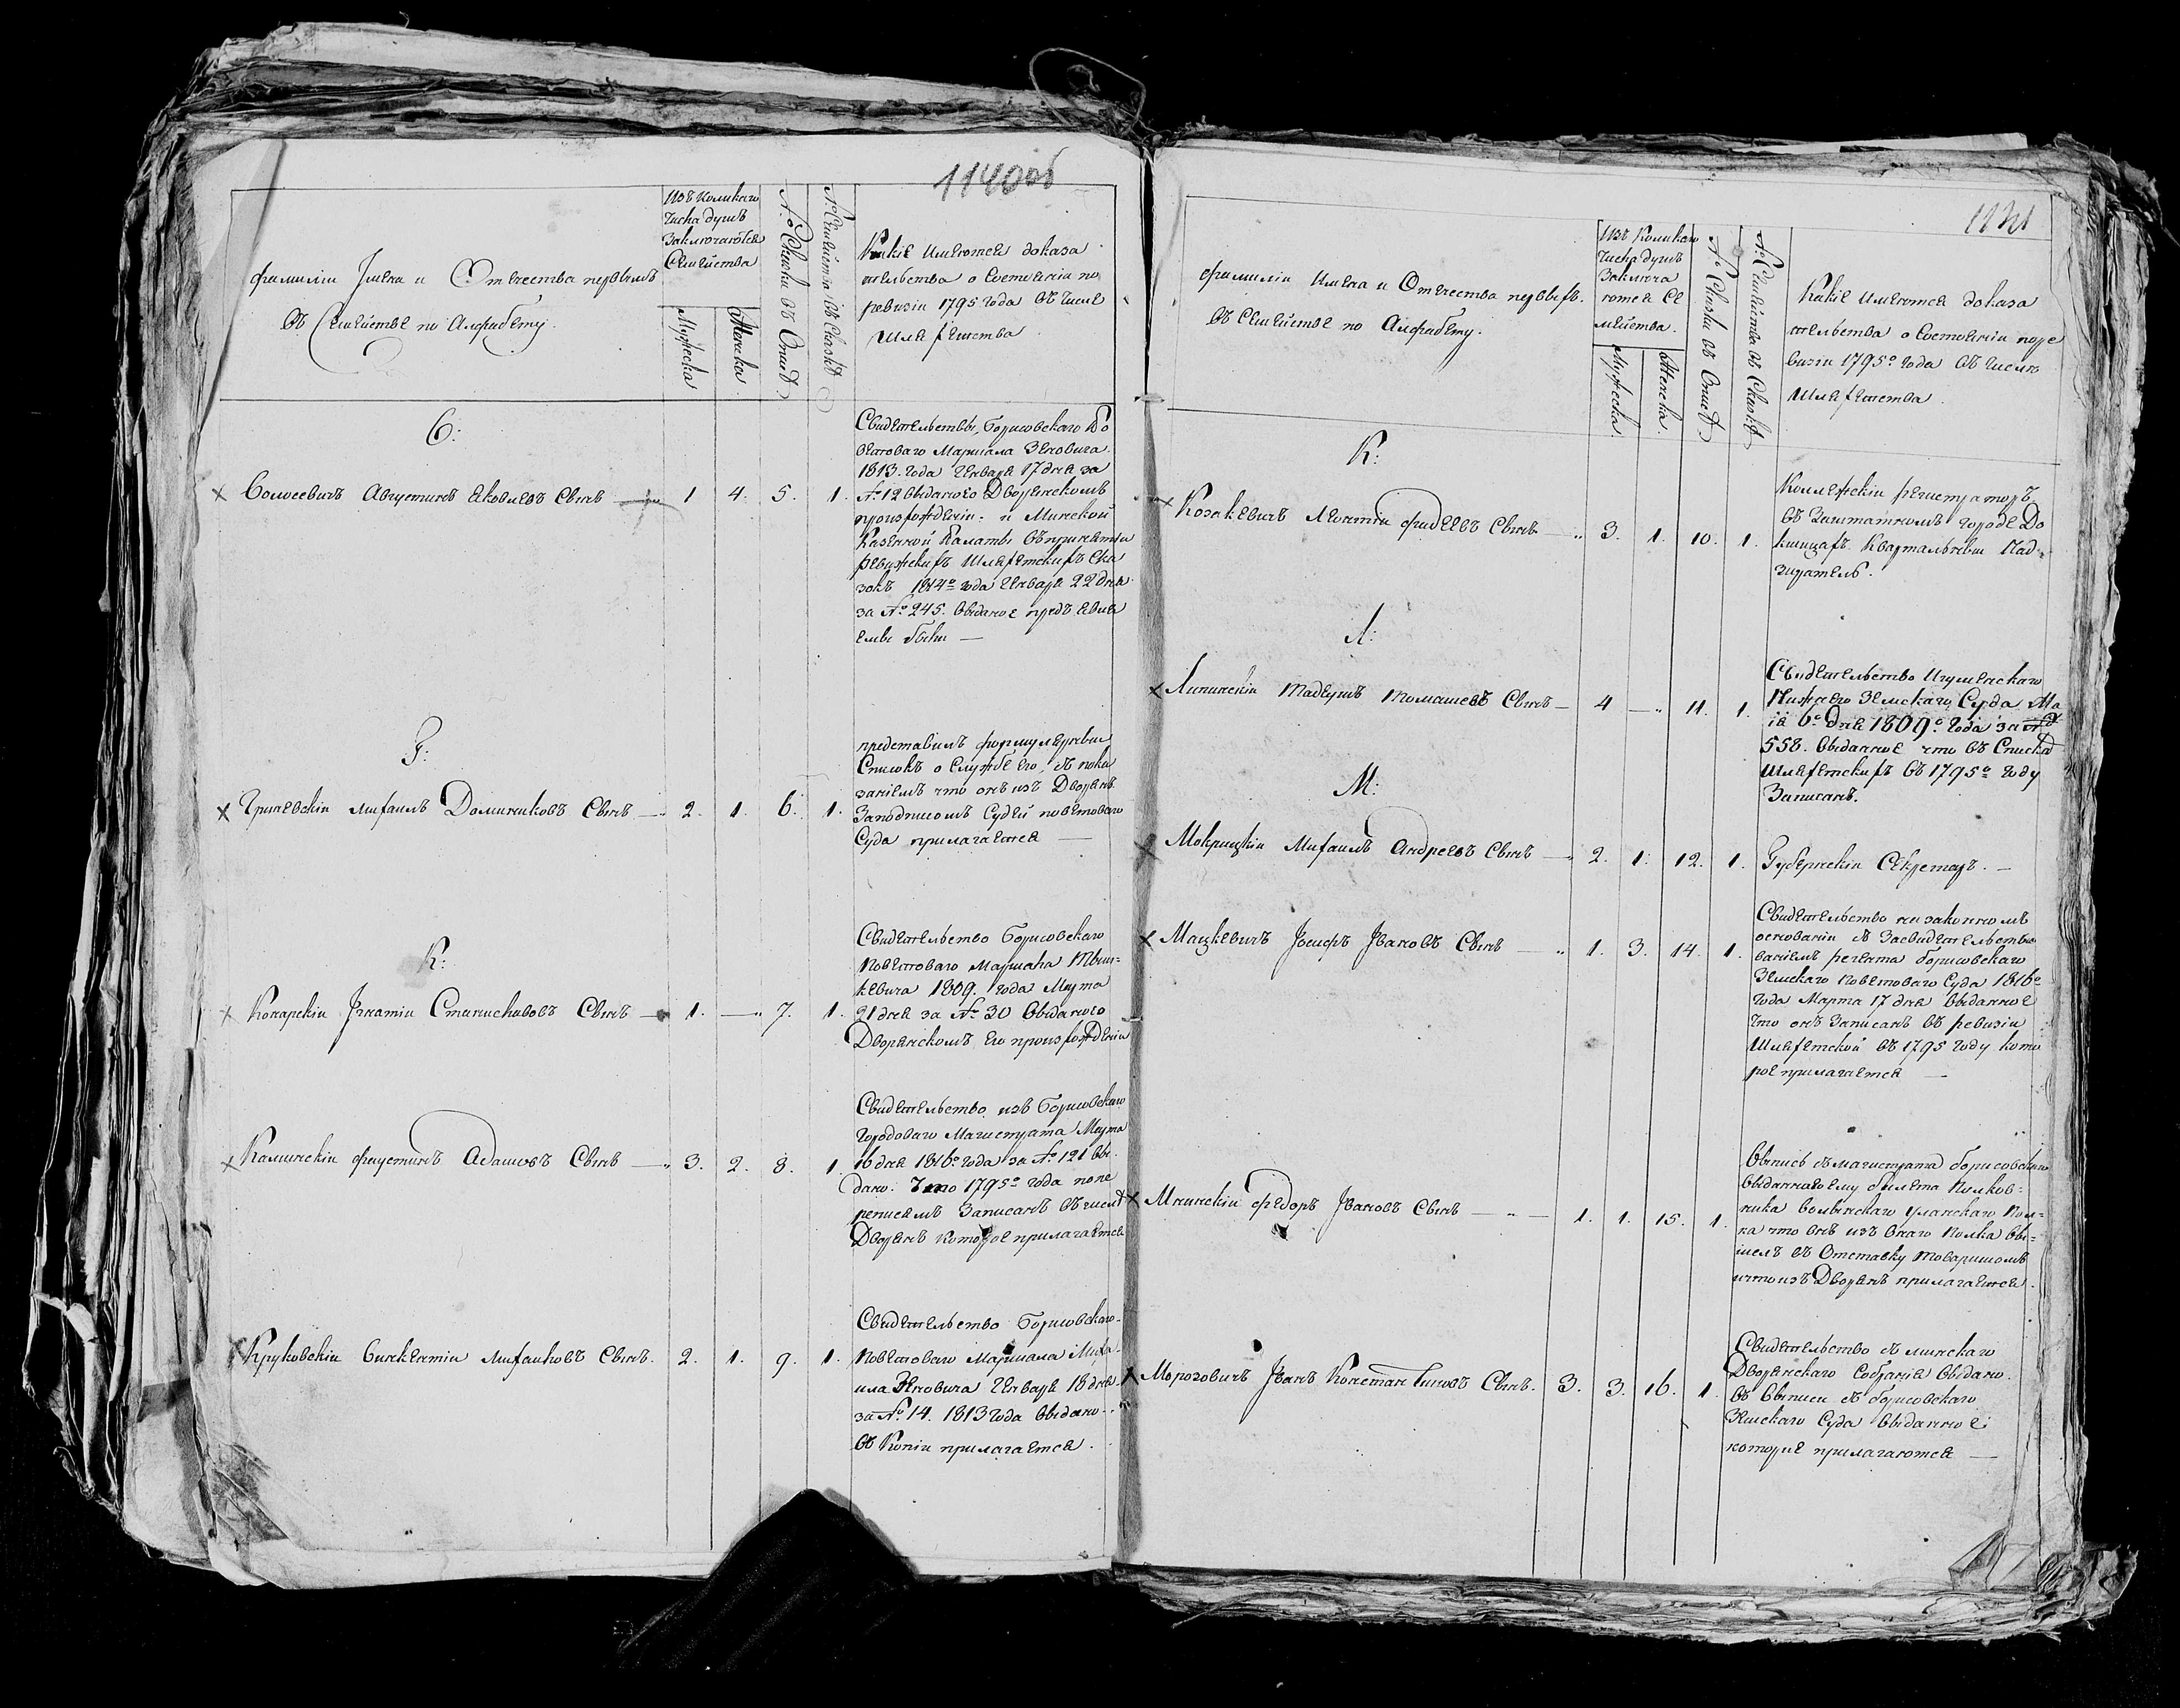 1140об
фамиліи Имена и Отчества первымъ
въ Семействе по Алфабету.
Изъ коликаго
числа душъ
Заключаются
Семейства
Мужеска
Женска
№ Сказки въ Описѣ
№ Семействъ въ Сказкѣ
Какіе имеются доказа
тельства о Состоянiи по
ревизіи 1795 года въ числе
Шляхетства
С:
Августинъ Яковлевъ Сынъ — 1 4. 5. 1.
Свидетельствы, Борисовскаго По
ветоваго Маршала Зеновича
1813. года Генваря 17 дня за
№ 12 выданного Дворянскомъ
произхожденіи. и Минской
Казенной Палаты въ принятіи
ревижскихъ Шляхетскихъ ска
зокъ 1814го года Генваря 22 дня
за № 245. выданное предъ явив
емы были —
Г:
Михаилъ Доминиковъ Сынъ — 2. 1. 6. 1.
представилъ формулярный
Списокъ о службе его, съ пока
заніемъ что онъ изъ Дворянъ
За подписомъ Судьи поветоваго
Суда прилагается —
К:
Комарскіи Игнатіи Станиславовъ Сынъ — 1. — 7. 1.
Свидетельство Борисовскаго
Поветоваго Маршала Тыш-
кевича 1809. года Марта
21 дня за № 30 выданого
Дворянскомъ его произхожденіи
Каминскіи Фаустинъ Адамовъ Сынъ — 3. 2. 8. 1.
Свидетельство изъ Борисовскаго
Городоваго Магистрата Марта
16 дня 1816го года за № 121 вы
дано: Что 1795го года по пе
реписямъ Записанъ въ числѣ
Дворянъ которое прилагается
Круковскіи Винкентіи Михаиловъ Сынъ. 2. 1. 9. 1.
Свидетельство Борисовскаго
Поветоваго Маршала Миха
ила Зеновича Генваря 18 дня
за № 14. 1813 года выдано
въ Копіи прилагается.
1141
фамиліи Имена и Отчества первыхъ.
въ Семействе по Алфабету.
Изъ Коликаго
числа душъ
Заключа
ются Се
мейства.
Мужеска.
Женска.
№ Сказки въ Описѣ
№ Семейства въ Сказкѣ
Какіе имеются доказа
тельства о Состоянiи по ре
визіи 1795го года въ числѣ
Шляхетства
К:
Козакевичъ Леонтіи Фадеевъ Сынъ — 3. 1. 10. 1.
Коллежскіи регистраторъ
въ Заштатномъ городе До
кшицахъ Квартальныи Над-
зиратель.
Л:
Липинскіи Тадеушъ Томашевъ Сынъ — 4 — 11. 1.
Свидетельство Игуменскаго
Нижнего Земскаго Суда Ма
ія 6го дня 1809го года за №
558. выданное что въ Спискѣ
Шляхетскихъ въ 1795го году
Записанъ.
М:
Мокрицкіи Михаилъ Андреевъ Сынъ — 2. 1. 12. 1.
Губернскіи Секретарь. —
Мацкевичъ Іосифъ Ивановъ Сынъ — 1. 3. 14. 1.
Свидетельство на законномъ
основаніи съ Засвидетельство
ваніемъ регента борисовскаго
Земскаго Поветоваго Суда 1816го
года Марта 17 дня выданное
что онъ Записанъ въ ревизіи
Шляхетской въ 1795 году кото
рое прилагается —
Федоръ Ивановъ Сынъ — 1. 1. 15. 1.
Выпись съ магистрата борисовскаго
выданнаго ему билета Полков-
ника волынскаго уланскаго Пол-
ка что онъ изъ онаго Полка вы-
шелъ въ Отставку товаришомъ
и что изъ Дворянъ прилагается.
Морозовичъ Иванъ Константиновъ Сынъ. 3. 3. 16. 1.
Свидетельство съ минскаго
Дворянскаго Собранія выдано.
въ выписи съ борисовскаго
Земскаго Суда выданное
которые прилагаются —